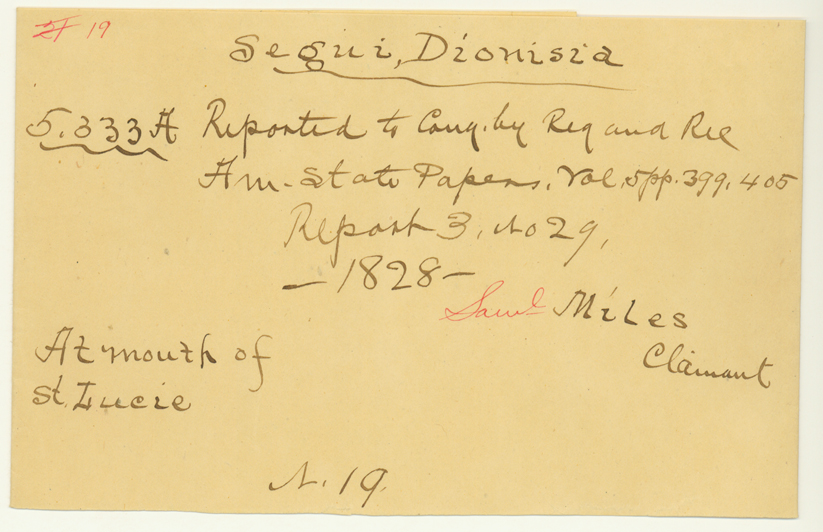 19
Segui, Dionisia
5.333 A Reported to Cong. by Reg and Rec
Am. State Papers, Vol. 5 pp. 399, 405
Report 3, No 29,
— 1828 —
Saml Miles
Claimant
At mouth of
St. Lucie
N. 19.